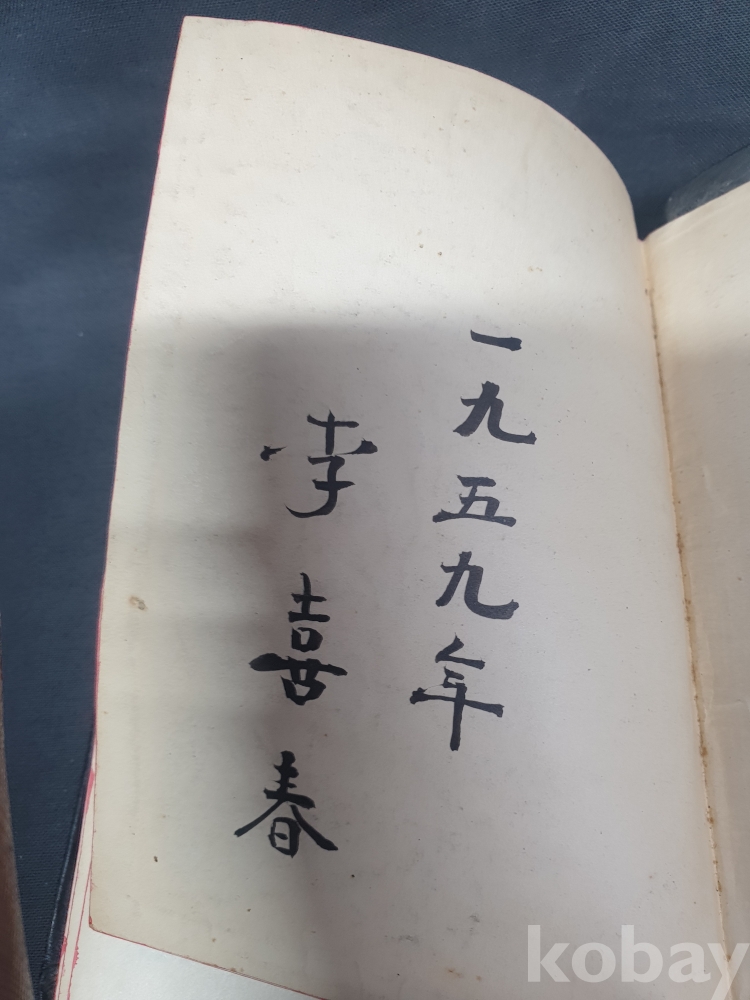 一九五九年
李喜春
kobay